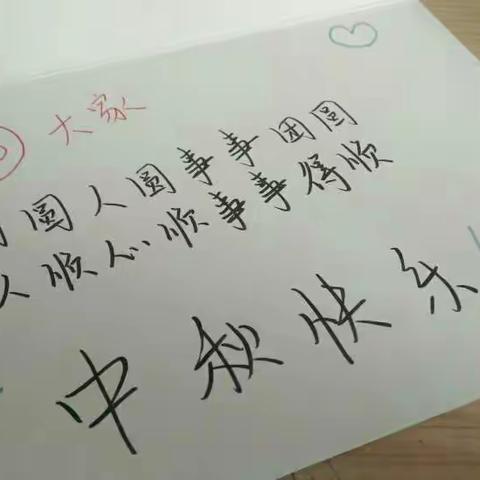 大家
圆人圆事事团圆
人顺心顺事事得顺
中秋快乐